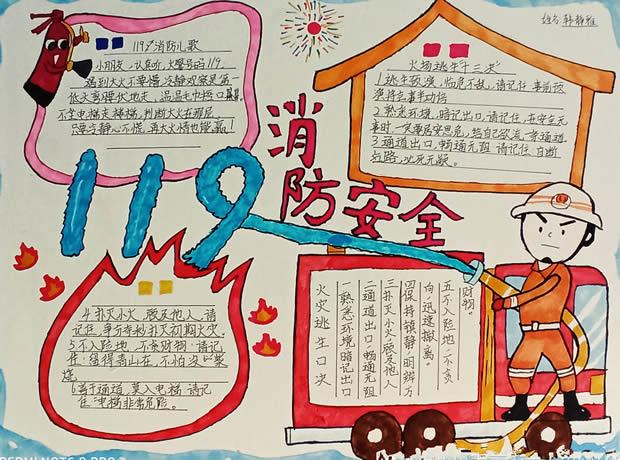 姓名 韩静雅
119消防儿歌
小朋友，认真听，火警号码119。
遇到大火不要慌，冷静观察是第一
低头弯腰伏地走，湿湿毛巾捂口鼻
不坐电梯走楼梯，判断火在那层
只要冷静心不慌，再大火情也能赢！
火场逃生十三决
1逃生预演，临危不乱，请记住：事前预
演将会事半功倍
2熟悉环境，暗记出口，请记住，在安全无
事时一定要居安思危，给自己留一条通道.
3通道出口，畅通无阻，请记住：自断
后路，必死无疑。
消防安全
119
4扑灭小火，惠及他人，请
记住，争分夺秒扑灭初期火灾。
5不入险地，不贪财物，请记
住：留得青山在，不怕没柴
烧
6善于通道，莫入电梯，请记
住：电梯非常危险。
火灾逃生口决
一熟悉环境暗记出口
二通道出口，畅通无阻
三扑灭小火，惠及他人
四保持镇静，明辨方
向，迅速撤离。
五不入险地，不贪
财物。
REDMI NOTE 8 PRO